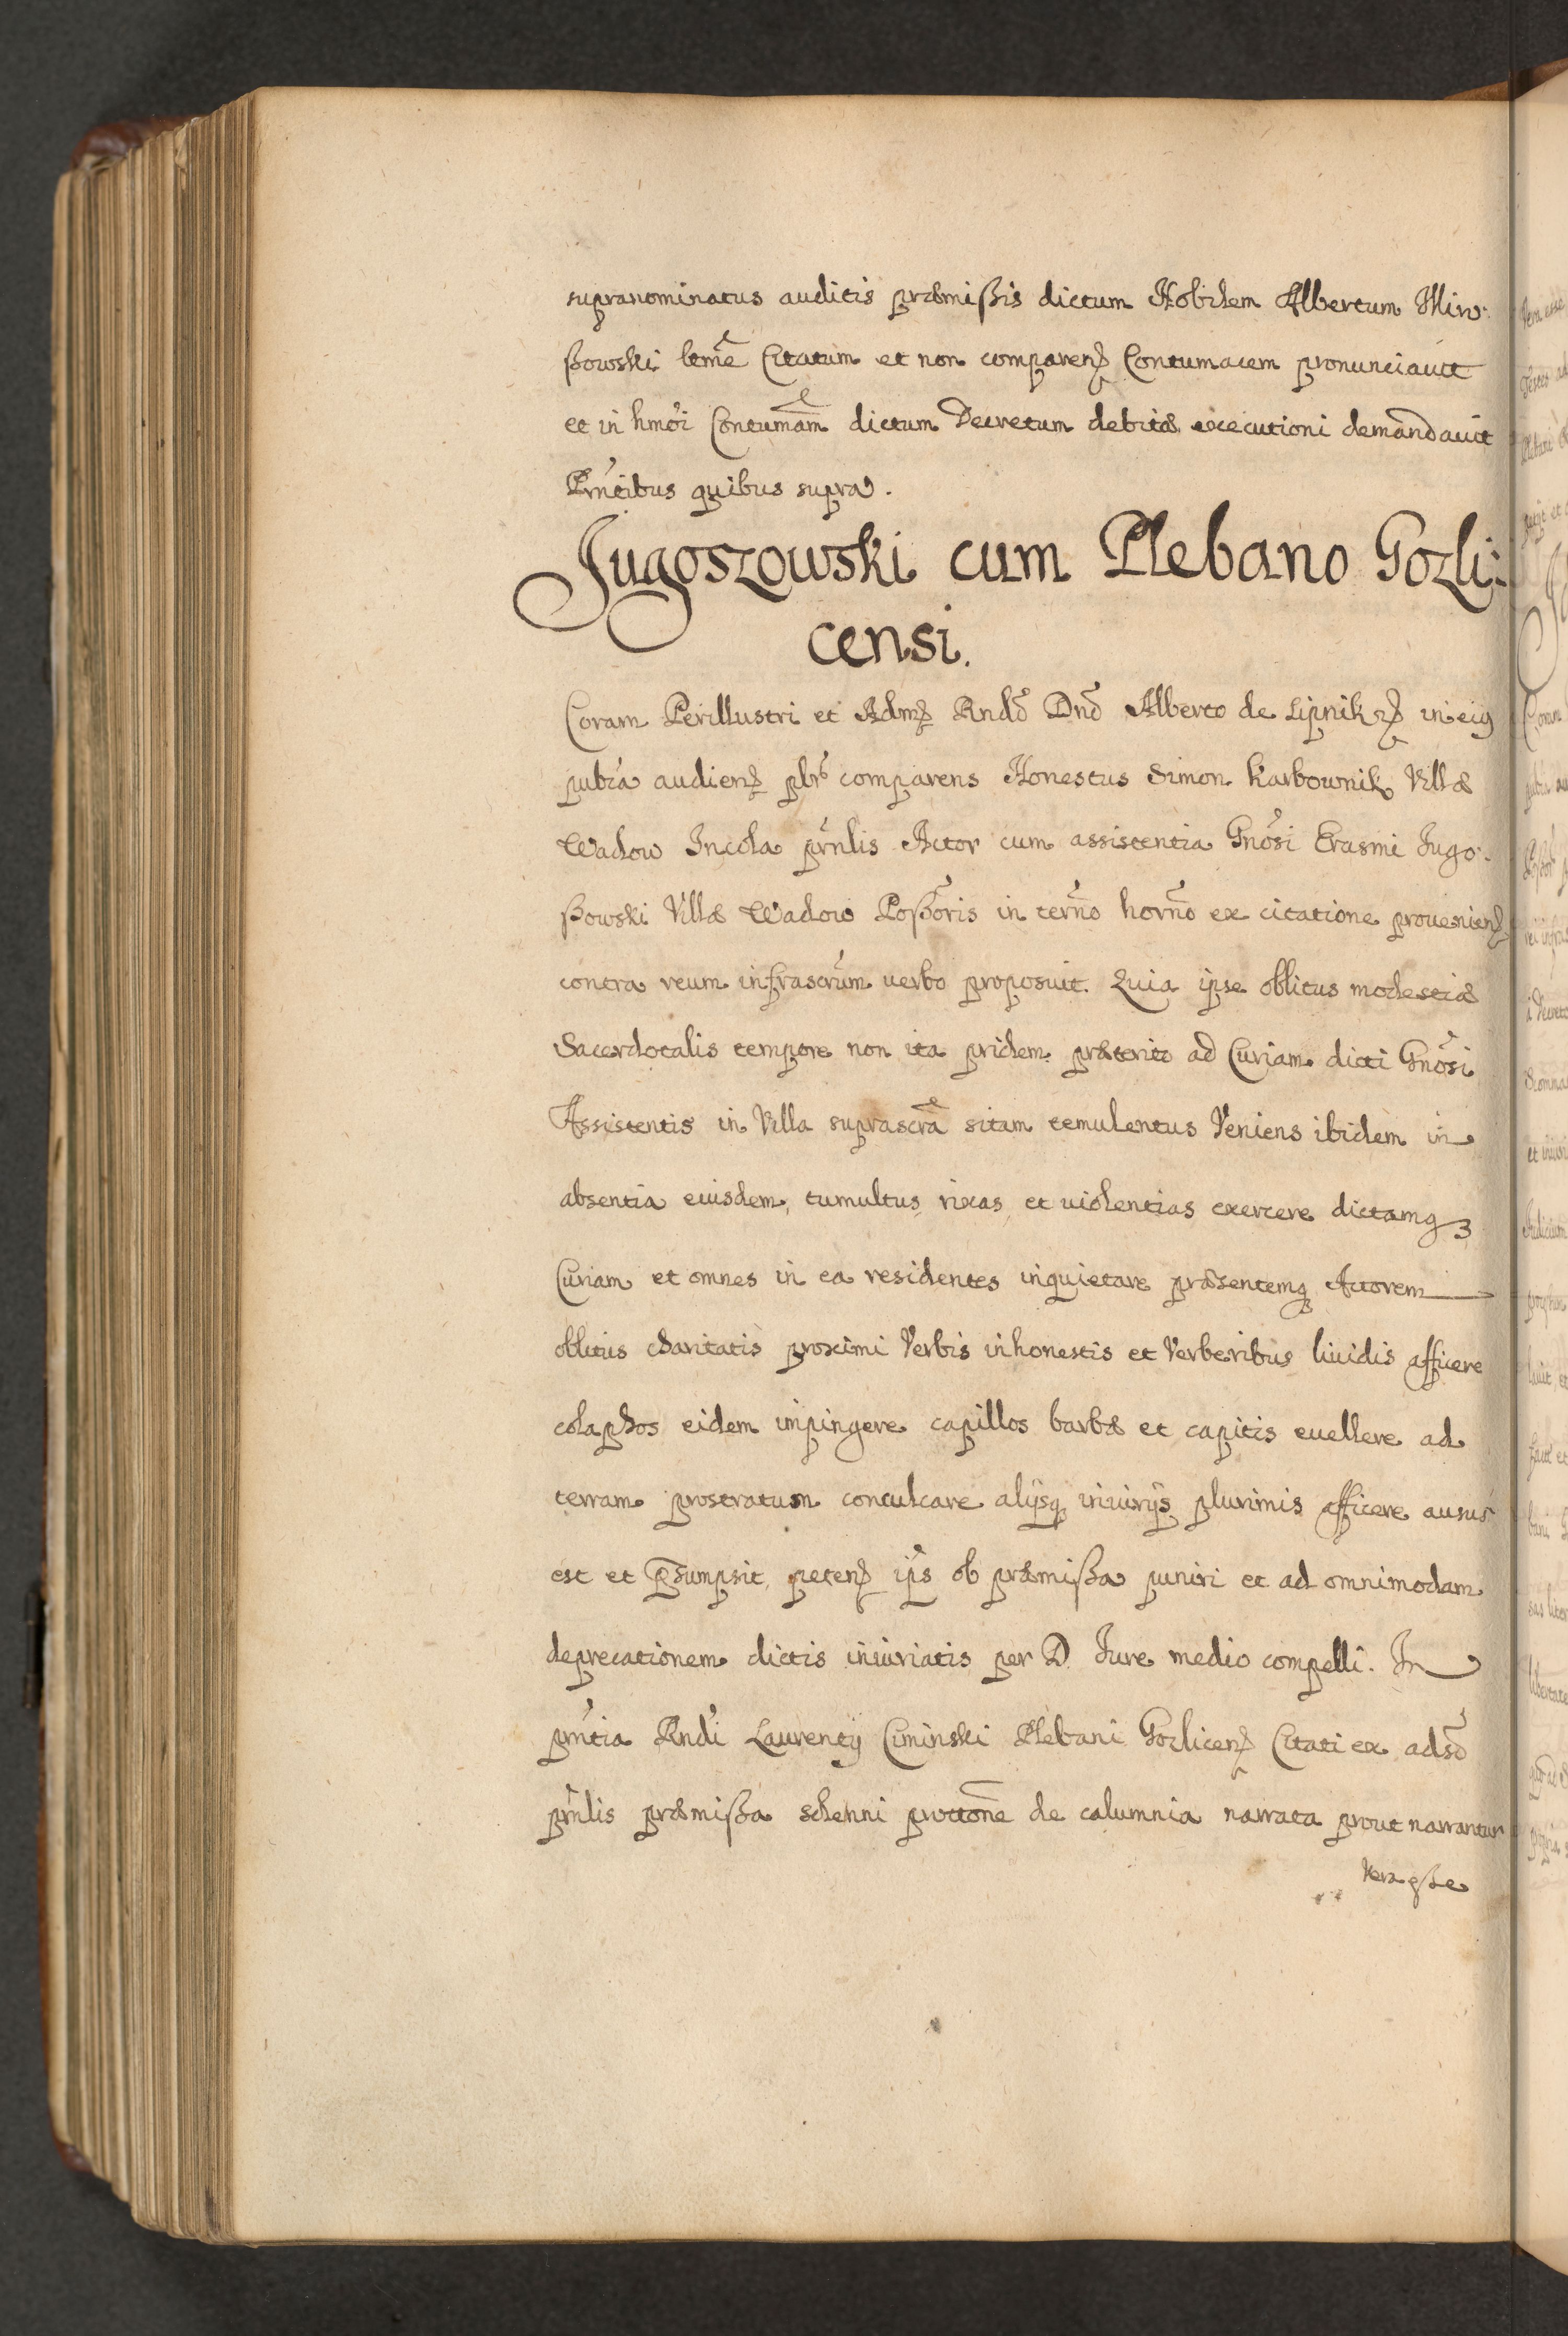 supranominatus auditis præmißis dictum Nobilem Albertum Miro-
ßowski ltmẽ Citatum et non comparenꝭ Contumacem pronunciauit
et in hmõi Contumãm dictum Decretum debitæ executioni demandauit
Prñtibus quibus supra.
Jugoszowski cum Plebano Gozli:
censi.
Coram Perillustri et Admꝭ Rndõ Dnõ Alberto de Lipnik ꝛꝭ in eiꝰ
publã audienꝭ plrs comparens Honestus Simon Karbownik Villæ
Wadow Incola prñlis Actor cum assistentia Gnõsi Erasmi Jugo-
ßowski Villæ Wadow Poßoris in terñno horñno ex citatione prouenienꝭ
contra reum infrascrũm uerbo proposuit. Quia ipse oblitus modestiæ
Sacerdotalis tempore non ita pridem præterito ad Curiam dicti Gnõsi
Assistentis in Villa suprascrã sitam temulentus Veniens ibidem in
absentia eiusdem, tumultus, rixas, et uiolentias exercere dictamqꝫ
Curiam et omnes in ea residentes inquietare præsentemqꝫ Actorem
oblitus charitatis proximi Verbis inhonestis et Verberibus liuidis afficere
colaphos eidem impingere capillos barbæ et capitis euellere ad
terram prostratum conculcare alijsqꝫ iniurijs plurimis afficere ausus
est et p̃sumpsit, petenꝭ ip̃s ob præmißa puniri et ad omnimodam
deprecationem dictis iniuriatis per D. Jure medio compelli. In
prñtia Rndi Laurentij Ciminski Plebani Gozlicenꝭ Citati ex adsõ
prñlis præmißa solenni prottõne de calumnia narrata prout narrantur
Vera eße